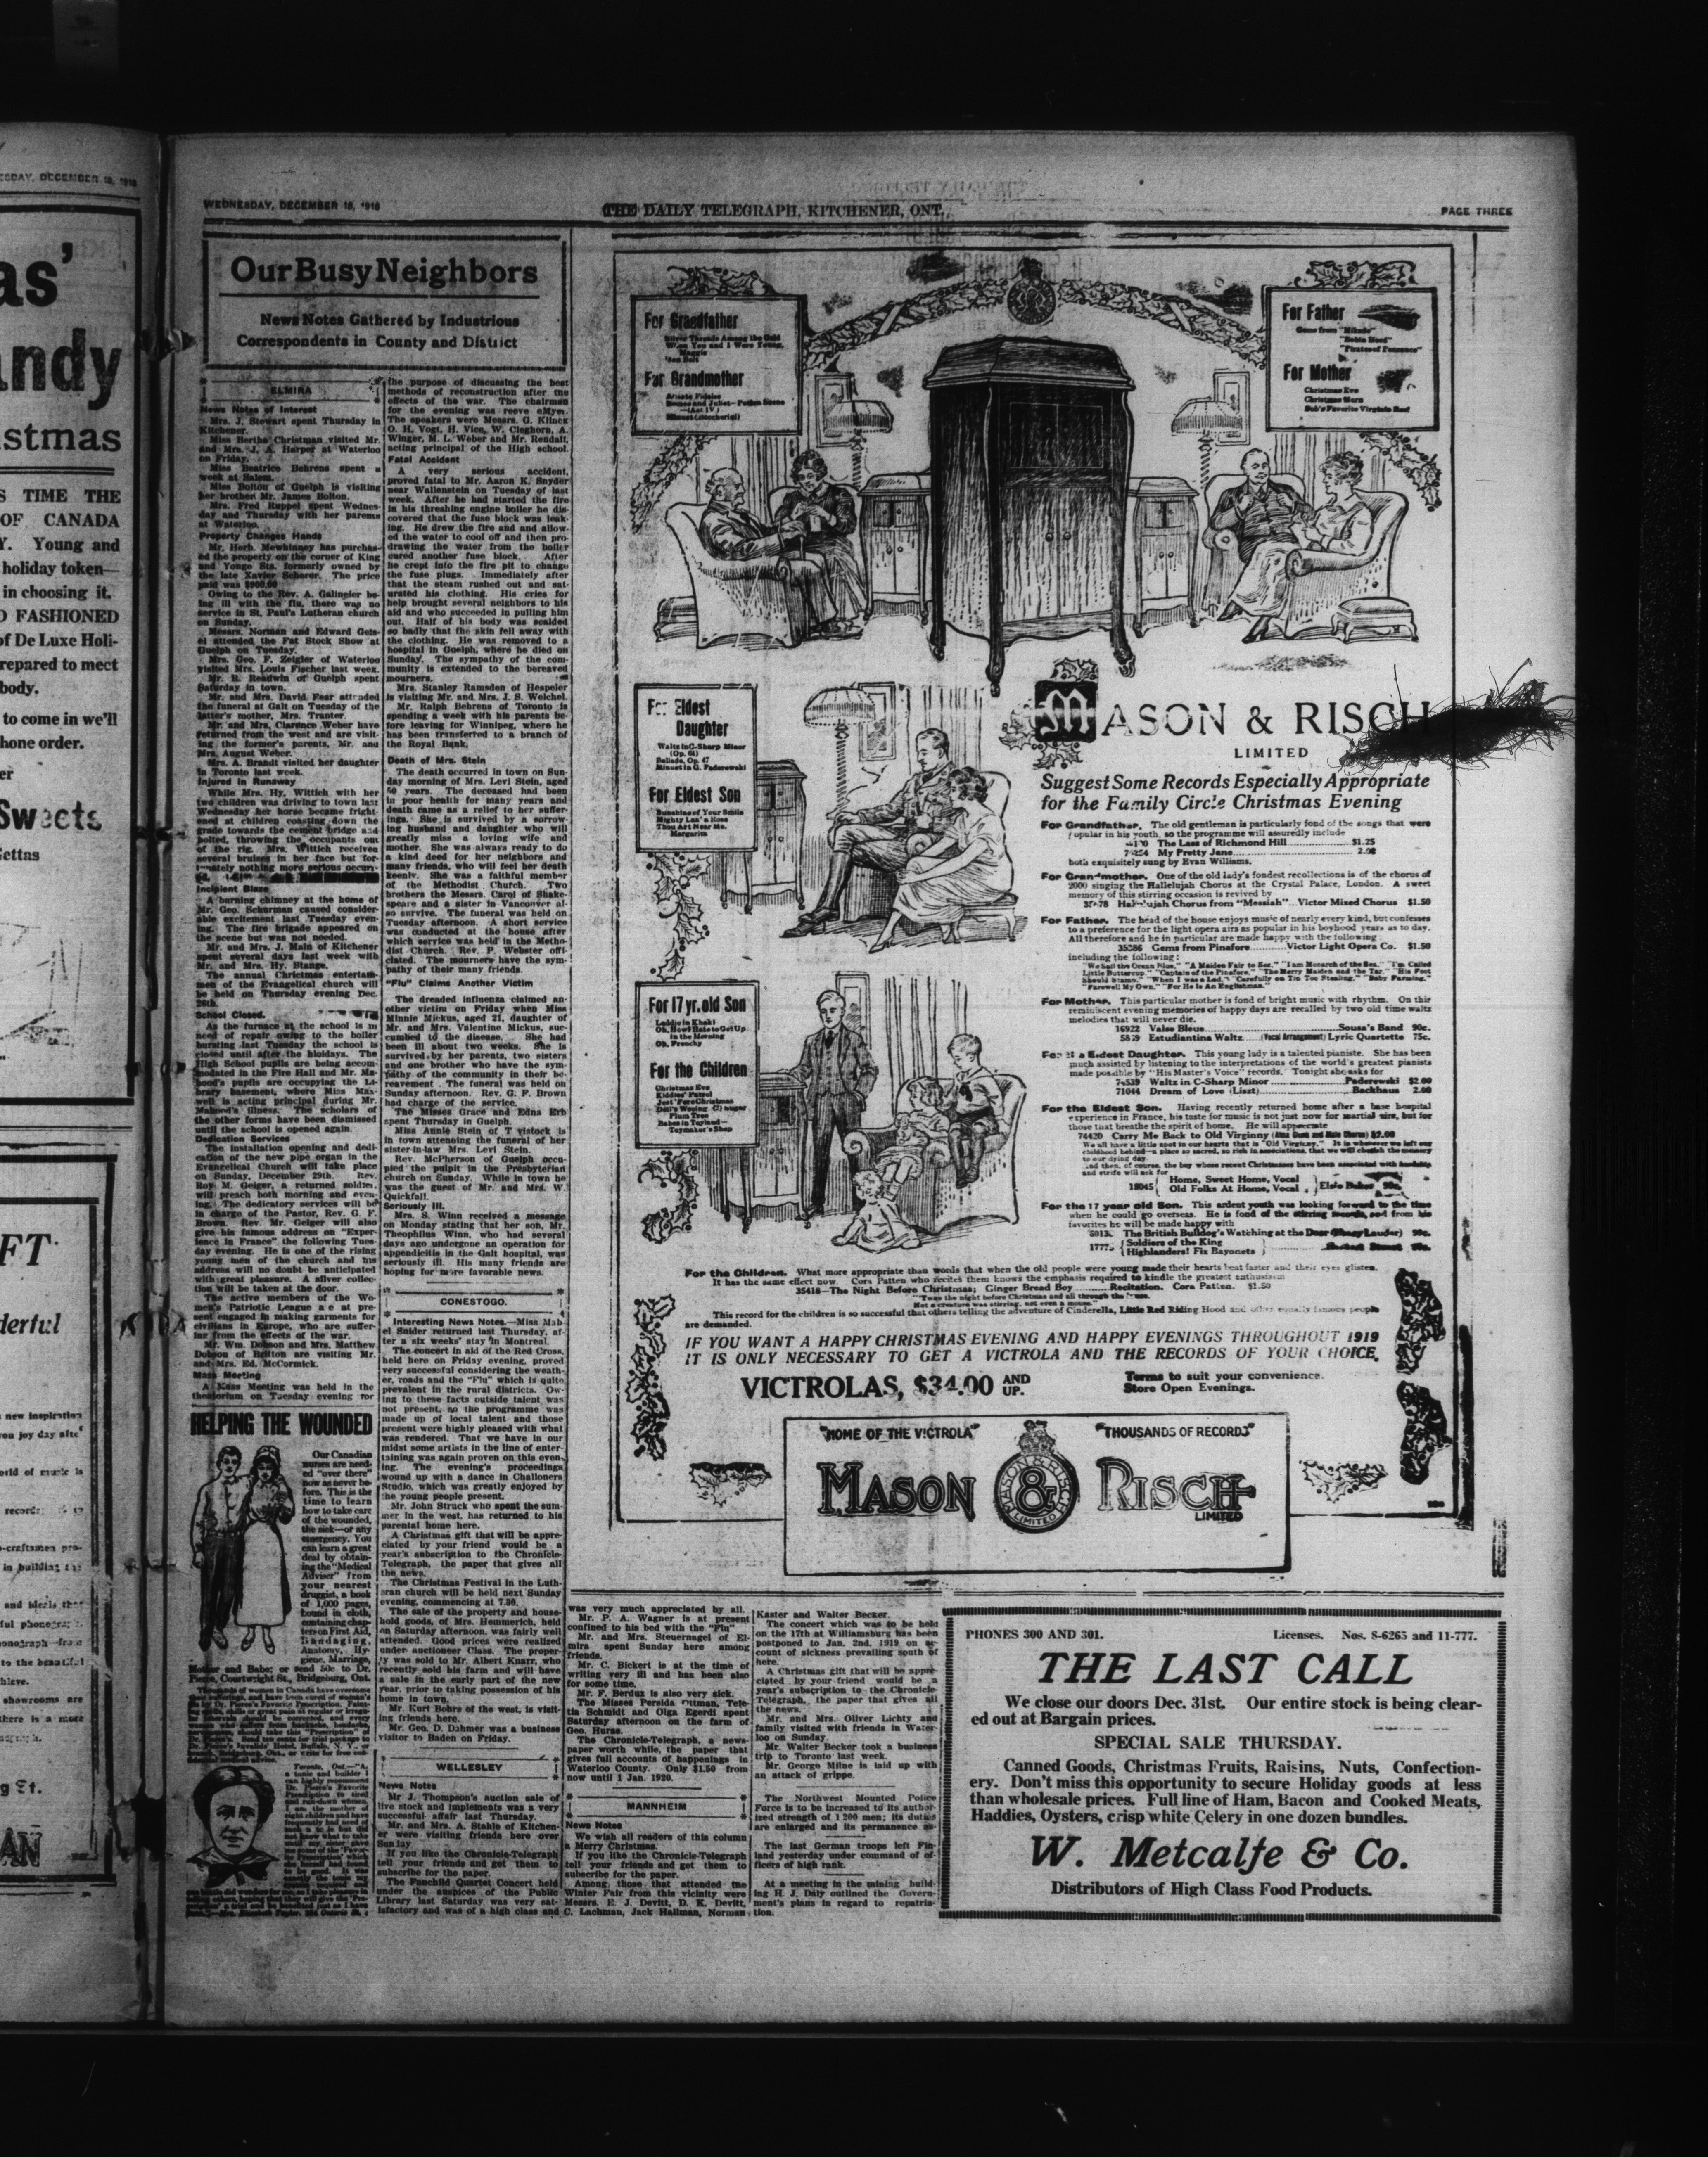 WEDNESDAY, DECEMBER 18, 1918
THE DAILY TELEGRAPH, KITCHENER, ONT.
PAGE THREE
Our Busy Neighbors
News Notes Gathered by Industrious
Correspondents in County and District
ELMIRA
News Notes of Interest
Mrs. J. Stewart spent Thursday in
Kitchener.
Miss Bertha Christman visited Mr.
and Mrs. J. A. Harper at Waterloo
on Friday.
Miss Beatrice Behrens spent a
week at Salem.
Miss Bolton of Guelph is visiting
her brother Mr. James Bolton.
Mrs. Fred Ruppel spent Wednes-
day and Thursday with her parents
at Waterloo.
Property Changes Hands
Mr. Herb. Mewhinney has purchas-
ed the property on the corner of King
and Yonge Sts. formerly owned by
the late Xavier Scherer. The price
paid was $900.00
Owing to the Rev. A. Galingler be-
ing ill with the flu, there was no
service in St. Paul's Lutheran church
on Sunday.
Messrs. Norman and Edward Geis-
el attended the Fat Stock Show at
Guelph on Tuesday.
Mrs. Geo. F. Zeigler of Waterloo
visited Mrs. Louis Fischer last week.
Mr. R. Readwin of Guelph spent
Saturday in town.
Mr. and Mrs. David Fear attended
the funeral at Galt on Tuesday of the
latter's mother, Mrs. Tranter.
Mr. and Mrs. Clarence Weber have
returned from the west and are visit-
ing the former's parents, Mr. and
Mrs. August Weber.
Mrs. A. Brandt visited her daughter
in Toronto last week.
Injured in Runaway
While Mrs. Hy. Wittich with her
two children was driving to town last
Wednesday her horse became fright-
ened at children coasting down the
grade towards the cement bridge and
bolted, throwing the occupants out
of the rig. Mrs. Wittich received
several bruises in her face but for-
tunately nothing more serious occurr-
Incipient Blaze
A burning chimney at the home of
Mr. Geo. Schurman caused consider-
able excitement last Tuesday even-
ing. The fire brigade appeared on
the scene but was not needed.
Mr. and Mrs. J. Main of Kitchener
spent several days last week with
Mr. and Mrs. Hy. Stange.
The annual Christmas entertain-
men of the Evangelical church will
be held on Thursday evening Dec.
26th.
School Closed.
As the furnace at the school is in
need of repair owing to the boiler
bursting last Tuesday the school is
closed until after the hloidays. The
High School pupils are being accom-
modated in the Fire Hall and Mr. Ma-
hood's pupils are occupying the Li-
brary basement, where Miss Max-
well is acting principal during Mr.
Mahood's illness. The scholars of
the other forms have been dismissed
until the school is opened again.
Dedication Services
The installation opening and dedi-
cation of the new pipe organ in the
Evangelical Church will take place
on Sunday, December 29th. Rev.
Roy. M. Geiger, a returned soldier,
will preach both morning and even-
ing. The dedicatory services will be
in charge of the Pastor, Rev. G. F.
Brown. Rev. Mr. Geiger will also
give his famous address on "Exper-
ience in France" the following Tues-
day evening. He is one of the rising
young men of the church and his
address will no doubt be anticipated
with great pleasure. A silver collec-
tion will be taken at the door.
The active members of the Wo-
men's Patriotic League a e at pre-
sent engaged in making garments for
civilians in Europe, who are suffer-
ing from the effects of the war.
Mr. Wm. Dobson and Mrs. Matthew
Dobson of Britton are visiting Mr.
and Mrs. Ed. McCormick.
Mass Meeting
A Mass Meeting was held in the
theatorium on Tuesday evening for
HELPING THE WOUNDED
Our Canadian
nurses are need-
ed "over there"
now as never be-
fore. This is the
time to learn
how to take care
of the wounded,
the sick—or any
emergency. You
can learn a great
deal by obtain-
ing the "Medical
Adviser" from
your nearest
druggist, a book
of 1,000 pages,
bound in cloth,
containing chap-
ters on First Aid,
Bandaging,
Anatomy, Hy-
giene, Marriage,
Mother and Babe; or send 50c to Dr.
Pierce, Courtwright St., Bridgeburg, Ont.
the purpose of discussing the best
methods of reconstruction after the
effects of the war. The chairman
for the evening was reeve eMyer.
The speakers were Messrs. G. Klinck
O. H. Vogt, H. Vice, W. Cleghorn, A.
Winger, M. L. Weber and Mr. Rendall,
acting principal of the High school.
Fatal Accident
A very serious accident,
proved fatal to Mr. Aaron K. Snyder
near Wallenstein on Tuesday of last
week. After he had started the fire
in his threshing engine boiler he dis-
covered that the fuse block was leak-
ing. He drew the fire and and allow-
ed the water to cool off and then pro-
drawing the water from the boiler
cured another fuse block. After
he crept into the fire pit to change
the fuse plugs. Immediately after
that the steam rushed out and sat-
urated his clothing. His cries for
help brought several neighbors to his
aid and who succeeded in pulling him
out. Half of his body was scalded
so badly that the skin fell away with
the clothing. He was removed to a
hospital in Guelph, where he died on
Sunday. The sympathy of the com-
munity is extended to the bereaved
mourners.
Mrs. Stanley Ramsden of Hespeler
is visiting Mr. and Mrs. J. S. Weichel.
Mr. Ralph Behrens of Toronto is
spending a week with his parents be-
fore leaving for Winnipeg, where he
has been transferred to a branch of
the Royal Bank.
Death of Mrs. Stein
The death occurred in town on Sun-
day morning of Mrs. Levi Stein, aged
50 years. The deceased had been
in poor health for many years and
death came as a relief to her suffer-
ings. She is survived by a sorrow-
ing husband and daughter who will
greatly miss a loving wife and
mother. She was always ready to do
a kind deed for her neighbors and
many friends, who will feel her death
keenly. She was a faithful member
of the Methodist Church. Two
brothers the Messrs. Carol of Shake-
speare and a sister in Vancouver al-
so survive. The funeral was held on
Tuesday afternoon. A short service
was conducted at the house after
which service was held in the Metho-
dist Church. Rev. P. Webster offi-
ciated. The mourners have the sym-
pathy of their many friends.
"Flu" Claims Another Victim
The dreaded influenza claimed an-
other victim on Friday when Miss
Minnie Mickus, aged 21, daughter of
Mr. and Mrs. Valentine Mickus, suc-
cumbed to the disease. She had
been ill about two weeks. She is
survived by her parents, two sisters
and one brother who have the sym-
pathy of the community in their be-
reavement. The funeral was held on
Sunday afternoon. Rev. G. F. Brown
had charge of the service.
The Misses Grace and Edna Erb
spent Thursday in Guelph.
Miss Annie Stein of T vistock is
in town attending the funeral of her
sister-in-law Mrs. Levi Stein.
Rev. McPherson of Guelph occu-
pied the pulpit in the Presbyterian
church on Sunday. While in town he
was the guest of Mr. and Mrs. W.
Quickfall.
Seriously Ill.
Mrs. S. Winn received a message
on Monday stating that her son, Mr.
Theophilus Winn, who had several
days ago undergone an operation for
appendicitis in the Galt hospital, was
seriously ill. His many friends are
hoping for more favorable news.
CONESTOGO.
Interesting News Notes.—Miss Mab
el Snider returned last Thursday, af-
ter a six weeks' stay in Montreal.
The concert in aid of the Red Cross,
held here on Friday evening, proved
very successful considering the weath-
er, roads and the "Flu" which is quite
prevalent in the rural districts. Ow-
ing to these facts outside talent was
not present, so the programme was
made up of local talent and those
present were highly pleased with what
was rendered. That we have in our
midst some artists in the line of enter-
taining was again proven on this even-
ing. The evening's proceedings
wound up with a dance in Challoners
Studio, which was greatly enjoyed by
the young people present.
Mr. John Struck who spent the sum-
mer in the west, has returned to his
parental home here.
A Christmas gift that will be appre-
ciated by your friend would be a
year's subscription to the Chronicle-
Telegraph, the paper that gives all
the news.
The Christmas Festival in the Luth-
eran church will be held next Sunday
evening, commencing at 7.30.
The sale of the property and house-
hold goods, of Mrs. Hemmerich, held
on Saturday afternoon, was fairly well
attended. Good prices were realized
under auctioneer Class. The proper-
ty was sold to Mr. Albert Knarr, who
recently sold his farm and will have
a sale in the early part of the new
year, prior to taking possession of his
home in town.
Mr. Kurt Bohre of the west, is visit-
ing friends here.
Mr. Geo. D. Dahmer was a business
visitor to Baden on Friday.
WELLESLEY
News Notes
Mr J. Thompson's auction sale of
live stock and implements was a very
successful affair last Thursday.
Mr. and Mrs. A. Stahle of Kitchen-
er were visiting friends here over
Sunday
If you like the Chronicle-Telegraph
tell your friends and get them to
subscribe for the paper.
The Fanchild Quartet Concert held
under the auspices of the Public
Library last Saturday was very sat-
isfactory and was of a high class and
was very much appreciated by all.
Mr. P. A. Wagner is at present
confined to his bed with the "Flu"
Mr. and Mrs. Steuernagel of El-
mira spent Sunday here among
friends.
Mr. C. Bickert is at the time of
writing very ill and has been also
for some time.
Mr. F. Berdux is also very sick.
The Misses Persida Pittman, Tele-
tia Schmidt and Olga Egerdi spent
Saturday afternoon on the farm of
Geo. Huras.
The Chronicle-Telegraph, a news-
paper worth while, the paper that
gives full accounts of happenings in
Waterloo County. Only $1.50 from
now until 1 Jan. 1920.
MANNHEIM
News Notes
We wish all readers of this column
a Merry Christmas.
If you like the Chronicle-Telegraph
tell your friends and get them to
subscribe for the paper.
Among those that attended the
Winter Fair from this vicinity were
Messrs. E. J. Devitt, D. K. Devitt,
C. Lachman, Jack Hallman, Norman
Kaster and Walter Becker.
The concert which was to be held
on the 17th at Williamsburg has been
postponed to Jan. 2nd, 1919 on ac-
count of sickness prevailing south of
here.
A Christmas gift that will be appre-
ciated by your friend would be a
year's subscription to the Chronicle-
Telegraph, the paper that gives all
the news.
Mr. and Mrs. Oliver Lichty and
family visited with friends in Water-
loo on Sunday.
Mr. Walter Becker took a business
trip to Toronto last week.
Mr. George Milne is laid up with
an attack of grippe.
The Northwest Mounted Police
Force is to be increased to its author-
ized strength of 1 200 men; its duties
are enlarged and its permanence as-
The last German troops left Fin-
land yesterday under command of of-
ficers of high rank.
At a meeting in the mining build-
ing H. J. Daly outlined the Govern-
ment's plans in regard to repatria-
tion.
For Grandfather
Silver Threads Among the Gold
When You and I Were Young,
Maggie
Ben Bolt
For Grandmother
Adeste Fideles
Romeo and Juliet—
—(Act IV)
For Father
Gems from "Mikado"
"Robin Hood"
"Pirates of Penzance"
For Mother
Christmas Eve
Christmas Morn
Bob's Favorite Virginia Reel
For Eldest
Daughter
Waltz in C-Sharp Minor
(Op. 64)
Ballade, Op. 47
Minuet in G. Paderewski
For Eldest Son
Sunshine of Your Smile
Mighty Lak' a Rose
Thou Art Near Me,
Margarita
For 17 yr. old Son
Laddie in Khaki
Oh, How I Hate to Get Up
in the Morning
Oh, Frenchy
For the Children
Christmas Eve
Kiddies' Patrol
Babes in Toyland—
Toymaker's Shop
MASON & RISCH
LIMITED
Suggest Some Records Especially Appropriate
for the Family Circle Christmas Evening
For Grandfather. The old gentleman is particularly fond of the songs that were
popular in his youth, so the programme will assuredly include
The Lass of Richmond Hill $1.25
My Pretty Jane 2.00
both exquisitely sung by Evan Williams.
For Grandmother. One of the old lady's fondest recollections is of the chorus of
2000 singing the Hallelujah Chorus at the Crystal Palace, London. A sweet
memory of this stirring occasion is revived by
Hallelujah Chorus from "Messiah"...Victor Mixed Chorus $1.50
For Father. The head of the house enjoys music of nearly every kind, but confesses
to a preference for the light opera airs as popular in his boyhood years as to day.
All therefore and he in particular are made happy with the following:
35386 Gems from Pinafore Victor Light Opera Co. $1.50
including the following:
"We Sail the Ocean Blue," "A Maiden Fair to See," "I am Monarch of the Sea," "I'm Called
Little Buttercup," "Captain of the Pinafore," "The Merry Maiden and the Tar," "His Foot
Should Stamp," "When I was a Lad," "Carefully on Tip Toe Stealing," "Baby Farming,"
"Farewell My Own," "For He Is An Englishman."
For Mother. This particular mother is fond of bright music with rhythm. On this
reminiscent evening memories of happy days are recalled by two old time waltz
melodies that will never die.
16922 Valse Bleue Sousa's Band 90c.
5829 Estudiantina Waltz (Vocal Arrangement) Lyric Quartette 75c.
Eldest Daughter. This young lady is a talented pianiste. She has been
much assisted by listening to the interpretations of the world's greatest pianists
made possible by "His Master's Voice" records. Tonight she asks for
74539 Waltz in C-Sharp Minor Paderewski $2.00
71044 Dream of Love (Liszt) Backhaus 2.00
For the Eldest Son. Having recently returned home after a base hospital
experience in France, his taste for music is not just now for martial airs, but for
those that breathe the spirit of home. He will appreciate
74420 Carry Me Back to Old Virginny (Alma Gluck and Male Chorus) $2.00
We all have a little spot in our hearts that is "Old Virginny." It is wherever we left our
childhood behind—a place so sacred, so rich in associations, that we will cherish the memory
to our dying day
and then, of course, the boy whose recent Christmases have been associated with hardship
and strife will ask for
18045 Home, Sweet Home, Vocal
Old Folks At Home, Vocal Elsie Baker 90c.
For the 17 year old Son. This ardent youth was looking forward to the time
when he could go overseas. He is fond of the stirring records, and from his
favorites he will be made happy with
The British Bulldog's Watching at the Door (Harry Lauder) 90c.
Soldiers of the King
Highlanders! Fix Bayonets
For the Children. What more appropriate than words that when the old people were young made their hearts beat faster and their eyes glisten.
It has the same effect now. Cora Patten who recites them knows the emphasis required to kindle the greatest enthusiasm
35418—The Night Before Christmas; Ginger Bread Boy Recitation. Cora Patten. $1.50
"'Twas the night before Christmas and all through the house
Not a creature was stirring, not even a mouse."
This record for the children is so successful that others telling the adventure of Cinderella, Little Red Riding Hood and other equally famous people
are demanded.
IF YOU WANT A HAPPY CHRISTMAS EVENING AND HAPPY EVENINGS THROUGHOUT 1919
IT IS ONLY NECESSARY TO GET A VICTROLA AND THE RECORDS OF YOUR CHOICE.
VICTROLAS, $34.00 AND UP.
Terms to suit your convenience.
Store Open Evenings.
"HOME OF THE VICTROLA"
"THOUSANDS OF RECORDS"
MASON & RISCH
LIMITED
PHONES 300 AND 301.
Licenses. Nos. 8-6265 and 11-777.
THE LAST CALL
We close our doors Dec. 31st. Our entire stock is being clear-
ed out at Bargain prices.
SPECIAL SALE THURSDAY.
Canned Goods, Christmas Fruits, Raisins, Nuts, Confection-
ery. Don't miss this opportunity to secure Holiday goods at less
than wholesale prices. Full line of Ham, Bacon and Cooked Meats,
Haddies, Oysters, crisp white Celery in one dozen bundles.
W. Metcalfe & Co.
Distributors of High Class Food Products.